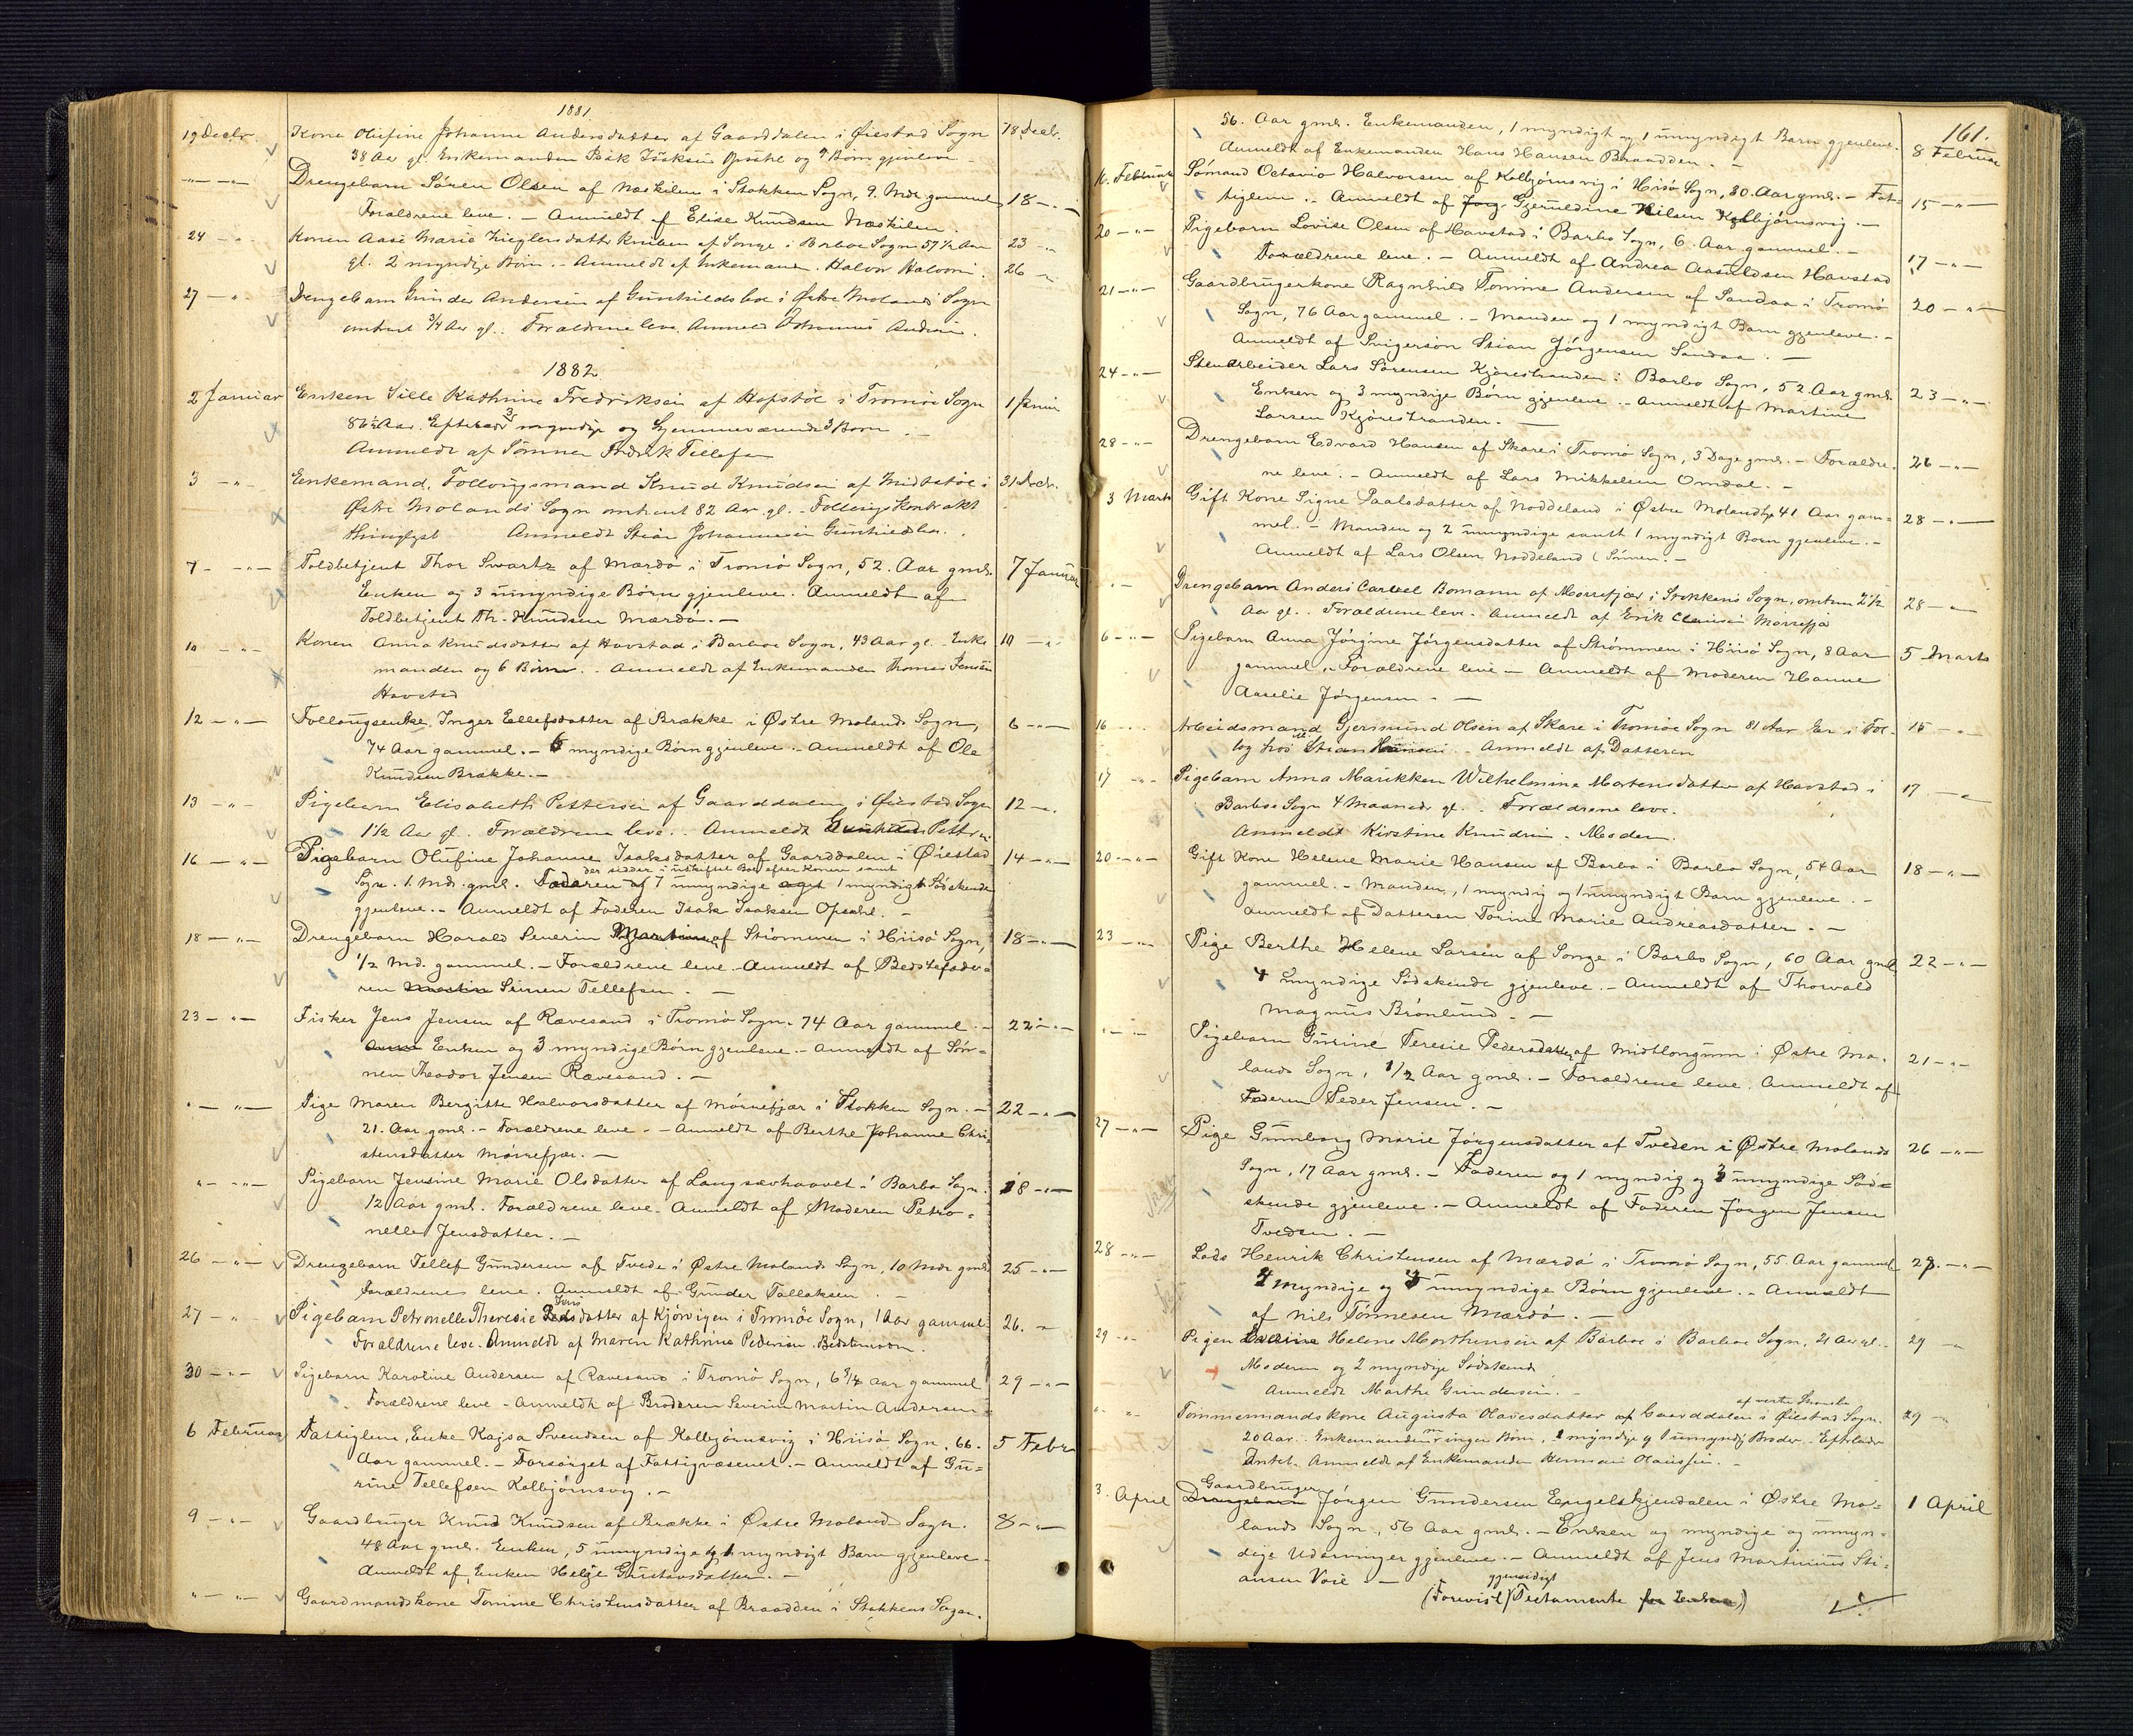 1881.
19 Decbr. Kone Olufine Johanne Andersdatter af Gaarddalen i Øiestad Sogn 18 Decbr.
38 Aar gl. Enkemanden Isak Isaksen Opsahl og 7 Børn gjenleve
"— "— Drengebarn Søren Olsen af Næskilen i Stokken Sogn, 9. Mdr gammel, 18 — "
Forældrene leve. — Anmeldt af Elise Knudsen Næskilen.
24 — " Konen Aase Marie Zieglersdatter Knudsen af Songe i Barboe Sogn 57½ Aar 23 — "
gl. 2 myndige Børn. — Anmeldt af Enkemanden Halvor Halvorsen. 26 — "
27 — " Drengebarn Gunder Andersen af Gunhildsboe i Østre Molands Sogn
omtrent ¾ Aar gl. Forældrene leve. Anmeldt Johannes Andersen.
1882.
2 Januar Enken Sille Kathrine Fredriksen af Hopstøl i Tromøe Sogn 1 Januar
81½ Aar. Efterlader 3 myndige og hjemmeværende 3 Børn —
Anmeldt af Sønnen Fredrik Tellefsen
3 — " Enkemand, Follougsmand Knud Knudsen af Midtstøl i 31 Decbr.
Østre Molands Sogn omtrent 82 Aar gl. — Follougskontrakt
thinglyst Anmeldt Stian Johannesen Gunhildsboe.
7 — " — Toldbetjent Thor Swartz af Mærdø i Tromø Sogn, 52. Aar gml. 7 Januar
Enken og 3 umyndige Børn gjenleve. Anmeldt af
Toldbetjent Th. Knudsen Mærdø. —
10 — " — Konen Anna Knudsdatter af Havstad i Barboe Sogn, 43 Aar gl. Enke 10 — "
manden og 6 Børn. — Anmeldt af Enkemanden Thomas Jensen
Havstad
12 — " — Follougsenke Inger Ellefsdatter af Brække i Østre Molands Sogn, 6 — " —
74 Aar gammel. — 6 myndige Børn gjenleve. — Anmeldt af Ole
Knudsen Brække. —
13 — " — Pigebarn Elisabeth Pettersen af Gaarddalen i Øiestad Sogn 12 — "
1½ Aar gl. Forældrene leve. Anmeldt Pettersen
16 — " — Pigebarn Olufine Johanne Isaksdatter af Gaarddalen i Øiestad 14 — " —
der sidder i uskiftet Bo efter Konen samt
Sogn. 1. Mdr. gml. Faderen af 7 umyndige og 1 myndigt Sødskende
gjenleve. — Anmeldt af Faderen Isak Isaksen Opsahl. —
18 — " — Drengebarn Harald Severin Martinsen af Strømmen i Hiisø Sogn, 18 — " —
½ Md. gammel. — Forældrene leve. Anmeldt af Bedstefade-
ren Martin Simen Tellefsen. —
23 — " — Fisker Jens Jensen af Rævesand i Tromø Sogn. 74 Aar gammel. — 22 — " —
Enken og 3 myndige Børn gjenleve. — Anmeldt af Søn-
nen Theodor Jensen Rævesand. —
" — " — Pige Maren Bergitte Halvorsdatter af Mørrefjær i Stokken Sogn. — 22 — " —
21. Aar gml. — Forældrene leve. — Anmeldt af Berthe Johanne Chri-
stensdatter Mørrefjær. —
" — " — Pigebarn Jensine Marie Olsdatter af Langsævhaavet i Barbo Sogn. 18 — " —
12 Aar gml. Forældrene leve. Anmeldt af Moderen Petro-
nelle Jensdatter. —
26 — " — Drengebarn Tellef Gundersen af Tvede i Østre Molands Sogn, 10 Mdr gml. 25 — " —
Forældrene leve. Anmeldt af Gunder Tallaksen. —
27 — " Pigebarn Petronelle Theresie Jensdatter af Kjørvigen i Tromøe Sogn, 1 Aar gammel. 26. — "
Forældrene leve. Anmeldt af Maren Kathrine Pedersen. Bedstemoder.
30 — " — Pigebarn Karoline Andersen af Rævesand i Tromø Sogn, 6¾ Aar gammel 29 — " —
Forældrene leve. — Anmeldt af Broderen Severin Martin Andersen —
6 Februar Fattiglem, Enke Kajsa Svendsen af Kolbjørnsvig i Hiisø Sogn. 66. 5 Febr
Aar gammel. — Forsørget af Fattigvæsenet. — Anmeldt af Gu-
rine Tellefsen Kolbjørnsvig. —
9 — " — Gaardbruger Knud Knudsen af Brække i Østre Molands Sogn. 8 — " —
48 Aar gml. Enken, 5 umyndige og 1 myndigt Barn gjenleve —
Anmeldt af Enken Helje Gustavsdatter. —
" — " — Gaardmandskone Tomine Christensdatter af Braadden i Stokkens Sogn.
161.
56. Aar gml. Enkemanden, 1 myndigt og 1 umyndigt Barn gjenleve. 8 Februar
Anmeldt af Enkemanden Hans Hansen Braadden. —
16. Februar Sømand Octavio Halvorsen af Kolbjørnsvig i Hisø Sogn, 30. Aar gml. — Fat- 15 — " —
tiglem. — Anmeldt af Gjeruldine Nilsen Kolbjørnsvig. —
20 — " — Pigebarn Lovise Olsen af Havstad i Barbo Sogn, 6. Aar gammel. — 17 — " —
Forældrene leve. — Anmeldt af Andrea Aanildsen Havstad
21 — " — Gaardbrugerkone Ragnhild Tomine Andersen af Sandaa i Tromø 20 — " —
Sogn, 76 Aar gammel. — Manden og 1 myndigt Barn gjenleve. —
Anmeldt af Svigersøn Stian Jørgensen Sandaa. —
24 — " — Stenarbeider Lars Sørensen Kjørestranden i Barbo Sogn, 52. Aar gml. 23 — " —
Enken og 3 myndige Børn gjenleve. — Anmeldt af Martine
Larsen Kjørestranden. —
28 — " — Drengebarn Edvard Hansen af Skare i Tromø Sogn, 3 Dage gml. — Forældre- 26 — " —
ne leve. — Anmeldt af Lars Mikkelsen Omdal. —
3 Marts Gift Kone Signe Paalsdatter af Noddeland i Østre Moland 41 Aar gam- 28 — " —
mel. — Manden og 2 umyndige samt 1 myndigt Barn gjenleve. —
Anmeldt af Lars Olsen Noddeland (Sønnen. —
" — Drengebarn Anders Bomann af Mørrefjær i Stokkens Sogn, omtrent 2½ 28 — " —
Aar gl. Forældrene leve. Anmeldt af Erik Clausen Mørrefjær
6 — " — Pigebarn Anna Jørgine Jørgensdatter af Strømmen i Hiisø Sogn, 8 Aar 5 Marts
gammel. Forældrene leve — Anmeldt af Moderen Hanne
Aaselie Jørgensen. —
16 — " Arbeidsmand Gjermund Olsen af Skare i Tromøe Sogn 81 Aar. Er i Fol- 15 — "
log hos Stian Hansen. — Anmeldt af Datteren
17 — " Pigebarn Anna Marikken Wilhelmine Mortensdatter af Havstad i 17 — "
Barboe Sogn 4 Maaneder gl. Forældrene leve.
Anmeldt Kirstine Knudsen. Moder.
20 — " — Gift Kone Helene Marie Hansen af Barbo i Barbo Sogn, 54 Aar 18 — " —
gammel. — Manden, 1 myndig og 1 umyndigt Barn gjenleve. —
Anmeldt af Datteren Torine Marie Andreasdatter. —
23 — " — Pige Berthe Helene Larsen af Songe i Barbo Sogn, 60 Aar gml. 22 — " —
4 myndige Sødskende gjenleve. — Anmeldt af Thorvald
Magnus Brønlund. —
" — " — Pigebarn Gurine Teresie Pedersdatter af Midtlongum i Østre Mo- 21 — " —
lands Sogn, ½ Aar gml. — Forældrene leve. Anmeldt af
Faderen Peder Jensen. —
27 — " — Pige Gunnborg Marie Jørgensdatter af Tveden i Østre Molands 26 — " —
Sogn, 17 Aar gml. — Faderen og 1 myndig og 3 umyndige Sød-
skende gjenleve. — Anmeldt af Faderen Jørgen Jensen
Tveden. —
28 — " — Lods Henrik Christensen af Mærdø i Tromø Sogn, 55 Aar gammel 27. — " —
4 myndige og umyndige Børn gjenleve. — Anmeldt
af Nils Tønnesen Mærdø. —
29 — " — Pigen Helene Morthensen af Barboe i Barboe Sogn, 21 Aar gl. 29 — "
Moderen og 2 myndige Sødskende
Anmeldt Marthe Gundersen. —
" — " Tømmermandskone Augusta Olavesdatter af Gaarddalen i Øiestad Sogn. 29 — "
20 Aar. Enkemanden ingen Børn, 2 myndige og 1 umyndig Broder. Efterlader
Intet. Anmeldt af Enkemanden Herman Olaussen. —
Gaardbruger
3. April Drengebarn Jørgen Gundersen Engelskjendalen i Østre Mo- 1 April
lands Sogn, 56 Aar gml. — Enken og myndige og umyn-
dige Udarvinger gjenleve. — Anmeldt af Jens Martinius Sti-
ansen Voie. —
gjensidigt
(Forevist) Testamente for Enken)